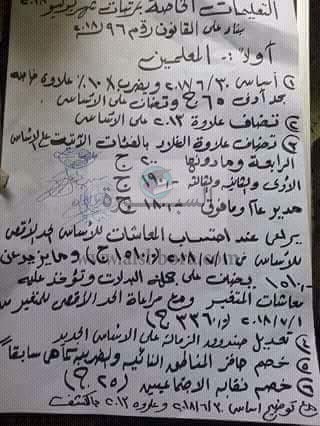 التعليمات الخاصة بمرتبات شهر يوليو ٢٠١٨
بناء على القانون رقم ٩٦ / ٢٠١٨
أولا :- المعلمين
① أساسى ٣٠/٦/٢٠١٨ ويضرب ٨٪ ١٠ علاوة خاصة
بحد أدنى ٦٥ ج وتضاف على الأساسى
② تضاف علاوة ٢٠١٣ على الأساسى
③ تضاف علاوة الغلاء بالفئات الثابتة على الأساسى
الرابعة وما دونها ٢٠٠ ج
الأولى والثانية والثالثة ١٩٠ ج
مدير عام وما فوق ١٨٠ ج
يراعى عند احتساب المعاشات للأساسى الحد الأقصى
للأساسى فى ١/٧/٢٠١٨ / ١٥١٠ ج وما يزيد عن
١٥١٠ يضاف على جملة البدلات وتؤخذ عليه
معاشات المتغير ومع مراعاة الحد الأقصى للمتغير من
١/٧/٢٠١٨ ( ٣٣٦٠ ج )
④ تعديل صندوق الزمالة على الأساسى الجديد
⑤ خصم حافز المناطق النائية والضريبة كما هى سابقا
⑥ خصم نقابة الاجتماعيين ( ٢٥ ج )
مع توضيح أساسى ٣٠/٦/٢٠١٨ وعلاوة ٢٠١٣ بالكشف